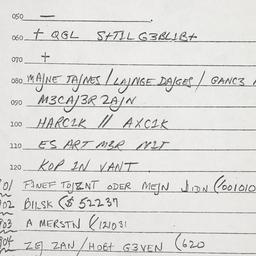 050 —
060 + QGL S+TIL G3BLIB+
070 +
080 MAJNE TAJNES / LAJNGE DAJGES / GANC3
090 M3CAJ3R ZAJN
100 HARCIK // AXCIK
110 ES ART M3R NIT
120 KOP IN VANT
01 TOJZNT ODER MEJN (001010
902 BILSK ($ 52237
903 A MERSTN (121031
904 ZEJ ZAN / HOBT G3VEN (620